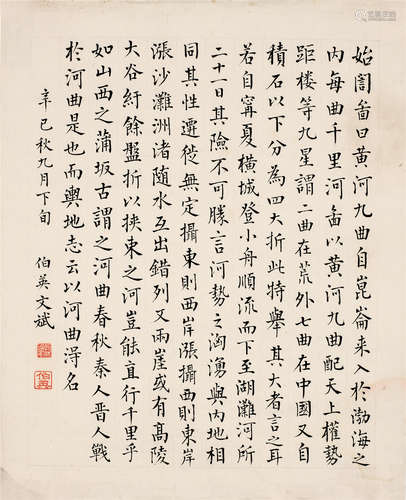 始訚啚曰黄河九曲自崑崙来入於渤海之
内每曲千里河啚以黄河九曲配天上權勢
距楼等九星謂二曲在荒外七曲在中國又自
積石以下分為四大折此特舉其大者言之耳
若自甯夏横城登小舟順流而下至湖灘河所
二十一日其險不可勝言河勢之洶湧與内地相
同其性遷徙無定攝東則西岸漲攝西則東岸
漲沙灘洲渚隨水互出錯列又兩崖或有高陵
大谷紆餘盤折以挾束之河豈能直行千里乎
如山西之蒲坂古謂之河曲春秋秦人晋人戰
於河曲是也而輿地志云以河曲淂名
辛巳秋九月下旬
伯英文斌